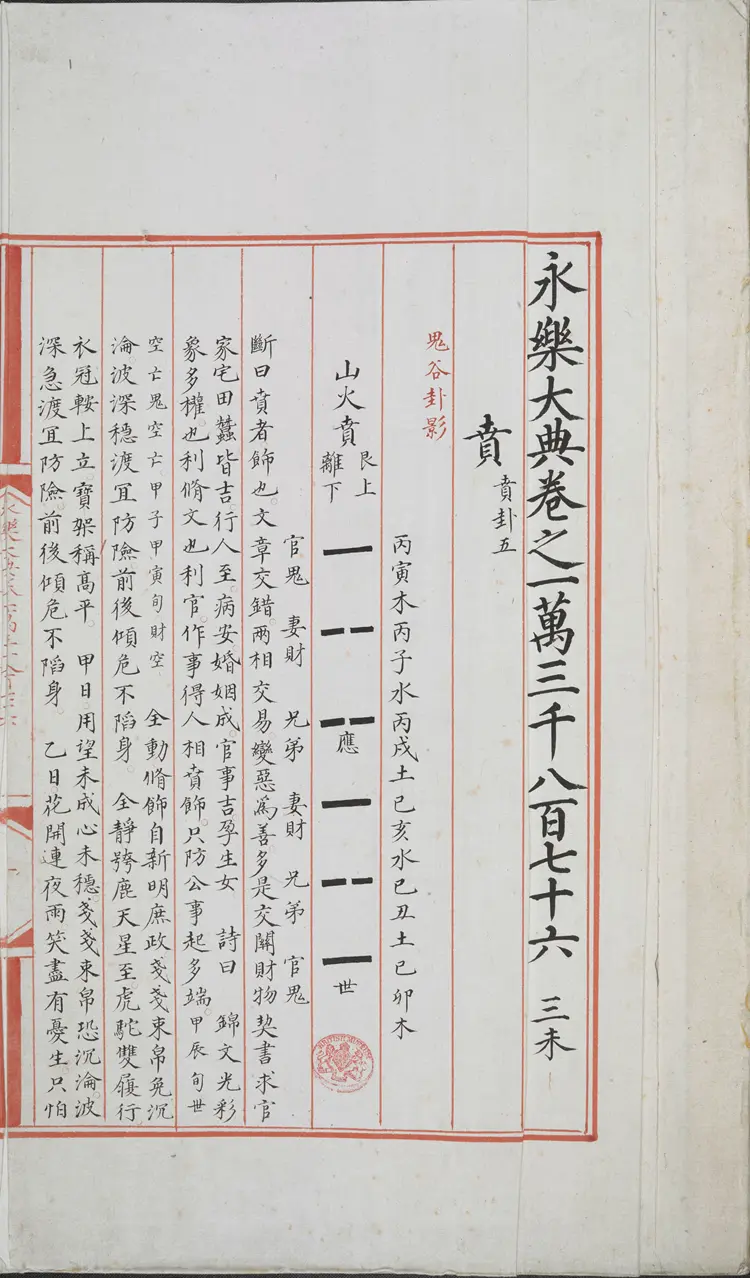 永樂大典卷之一萬三千八百七十六 三未
賁 賁卦五
鬼谷卦影
丙寅木丙子水丙戌土己亥水己丑土己卯木
山火賁 艮上離下 應 世
官鬼 妻財 兄弟 妻財 兄弟 官鬼
斷曰賁者飾也。文章交錯兩相交易變惡爲善多是交關財物契書求官
家宅田蠶皆吉。行人至。病安婚姻成。官事吉孕生女 詩曰 錦文光彩
象多權。也利脩文也利官。作事得人相賁飾。只防公事起多端。甲辰旬世
空亡鬼空亡。甲子甲寅旬財空 全動脩飾自新明庶政戔戔束帛免沉
淪波深穩渡冝防險前後傾危不蹈身。 全靜跨鹿天星至虎駝雙履行
衣冠鞍上立。寶架稱高平。 甲日。用望未成心未穩。戔戔束帛恐沉淪。波
深急渡冝防險。前後傾危不蹈身。 乙日。花開連夜雨笑盡有憂生只怕
BRITISH MUSEUM